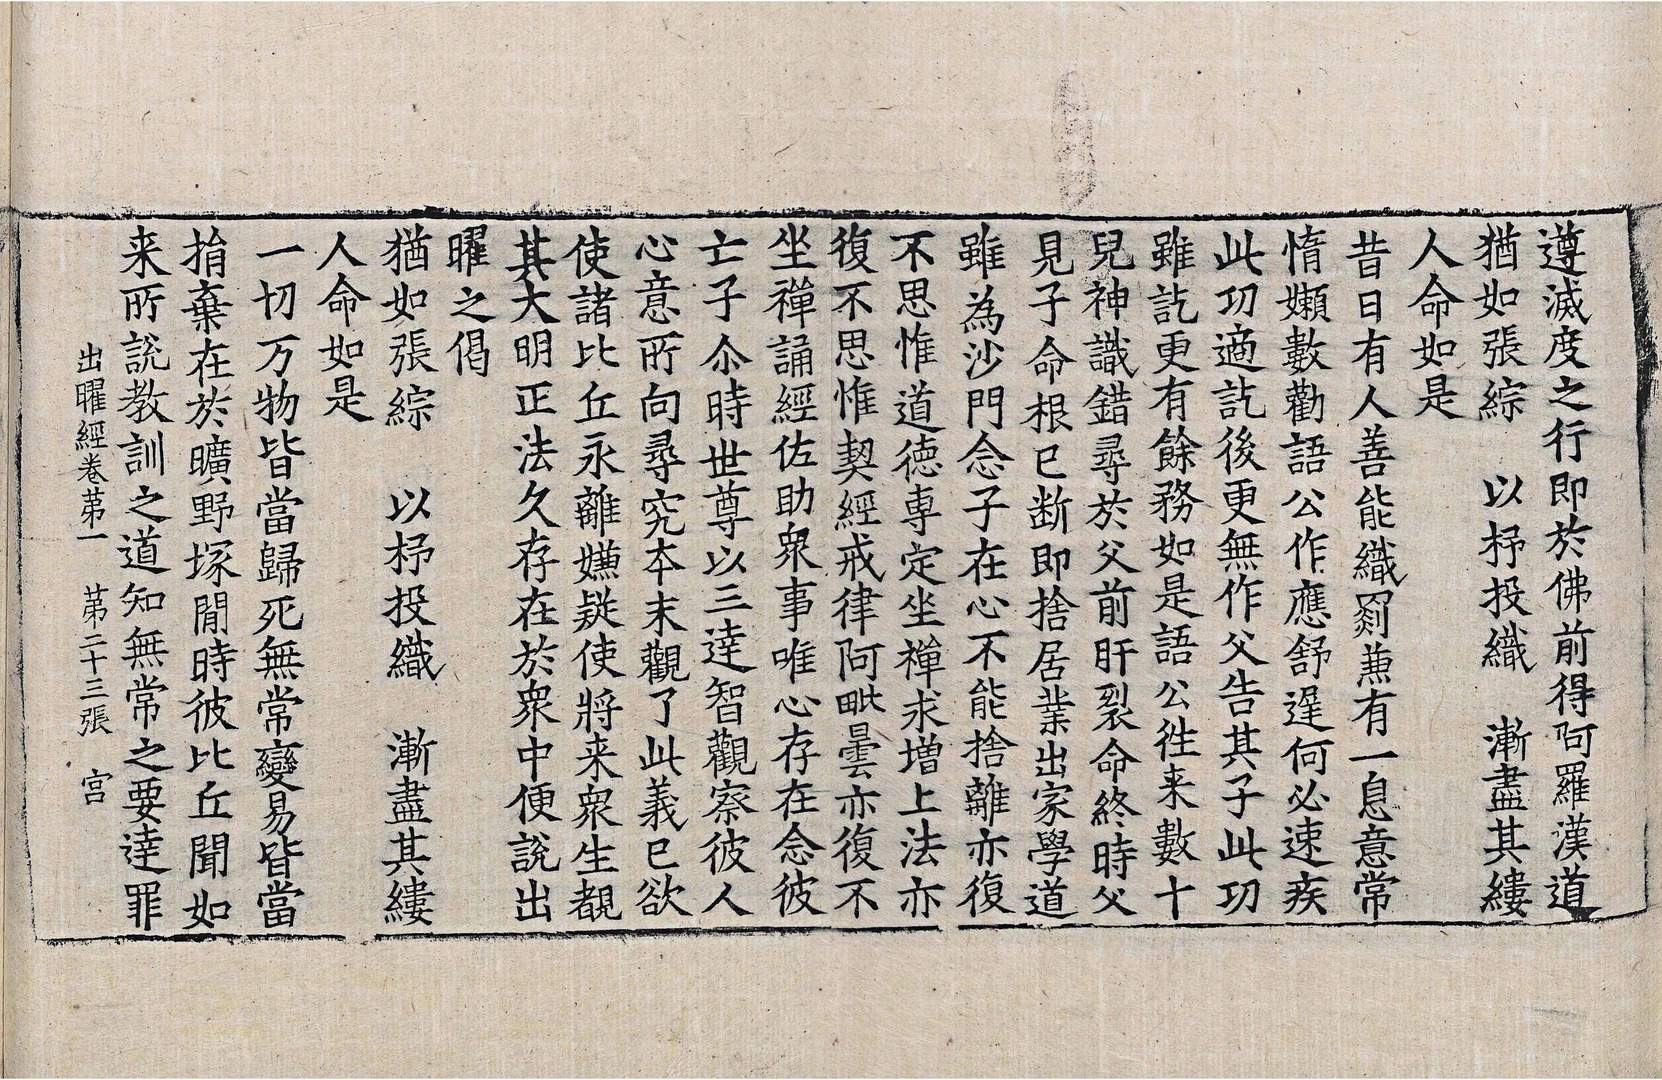 遵滅度之行即於佛前得阿羅漢道
猶如張綜　以杼投織　漸盡其縷
人命如是
昔日有人善能織罽兼有一息意常
惰嬾數勸語公作應舒遲何必速疾
此功適訖後更無作父告其子此功
雖訖更有餘務如是語公徃来數十
兒神識錯尋於父前肝裂命終時父
見子命根已断即捨居業出家學道
雖為沙門念子在心不能捨離亦復
不思惟道德専定坐禪求增上法亦
復不思惟契經戒律阿毗曇亦復不
坐禪誦經佐助衆事唯心存在念彼
亡子尒時世尊以三達智觀察彼人
心意所向尋究本末觀了此義已欲
使諸比丘永離嫌疑使將来衆生覩
其大明正法久存在於衆中便說出
曜之偈
猶如張綜　以杼投織　漸盡其縷
人命如是
一切万物皆當歸死無常變易皆當
捐棄在於曠野塚間時彼比丘聞如
来所說教訓之道知無常之要達罪
出曜經卷苐一　苐二十三張　宫